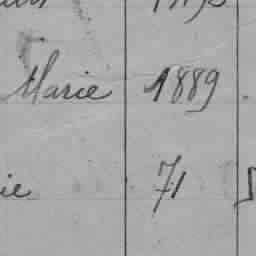 Marie 1889
ie 71